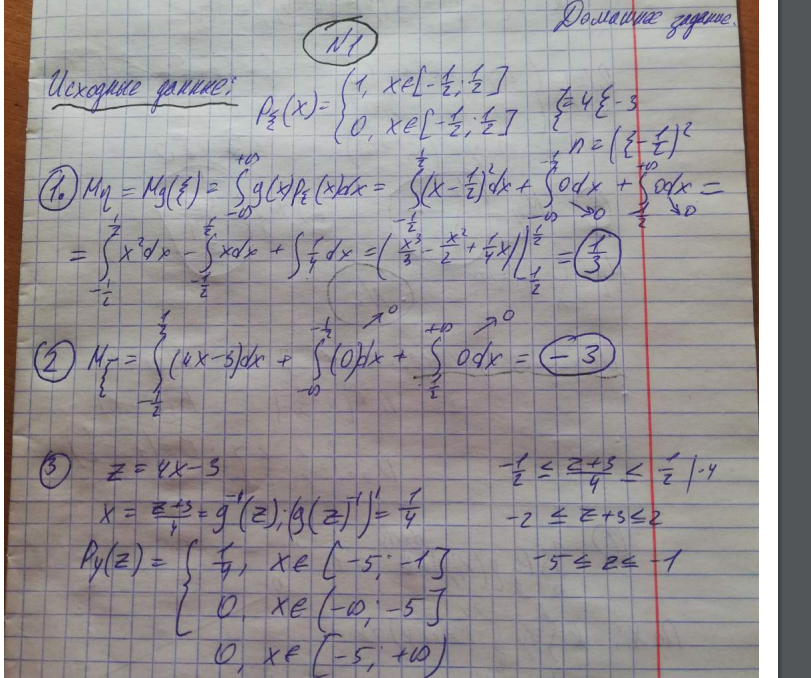 Домашнее задание.
N1
Исходные данные:
P_ξ(x) = { 1, x∈[-1/2; 1/2]
0, x∈[-1/2; 1/2]
ξ = 4ξ - 3
n = (ξ - 1/2)²
1. Mη = Mg(ξ) = ∫_{-∞}^{+∞} g(x)P_ξ(x)dx = ∫_{-1/2}^{1/2} (x - 1/2)² dx + ∫_{-∞}^{-1/2} 0dx →0 + ∫_{1/2}^{+∞} 0dx →0 =
= ∫_{-1/2}^{1/2} x² dx - ∫_{-1/2}^{1/2} x dx + ∫ 1/4 dx = (x³/3 - x²/2 + 1/4 x) |_{-1/2}^{1/2} = 1/3
2 M_ξ = ∫_{-1/2}^{1/2} (4x-3)dx + ∫_{-∞}^{-1/2} (0)dx →0 + ∫_{1/2}^{+∞} 0dx →0 = -3
3 z = 4x - 3
x = z+3/4 = g⁻¹(z); (g(z)⁻¹)' = 1/4
P_y(z) = { 1/4, x∈[-5; -1]
0, x∈(-∞; -5]
0, x∈[-5; +∞)
-1/2 ≤ z+3/4 ≤ 1/2 | ·4
-2 ≤ z+3 ≤ 2
-5 ≤ z ≤ -1